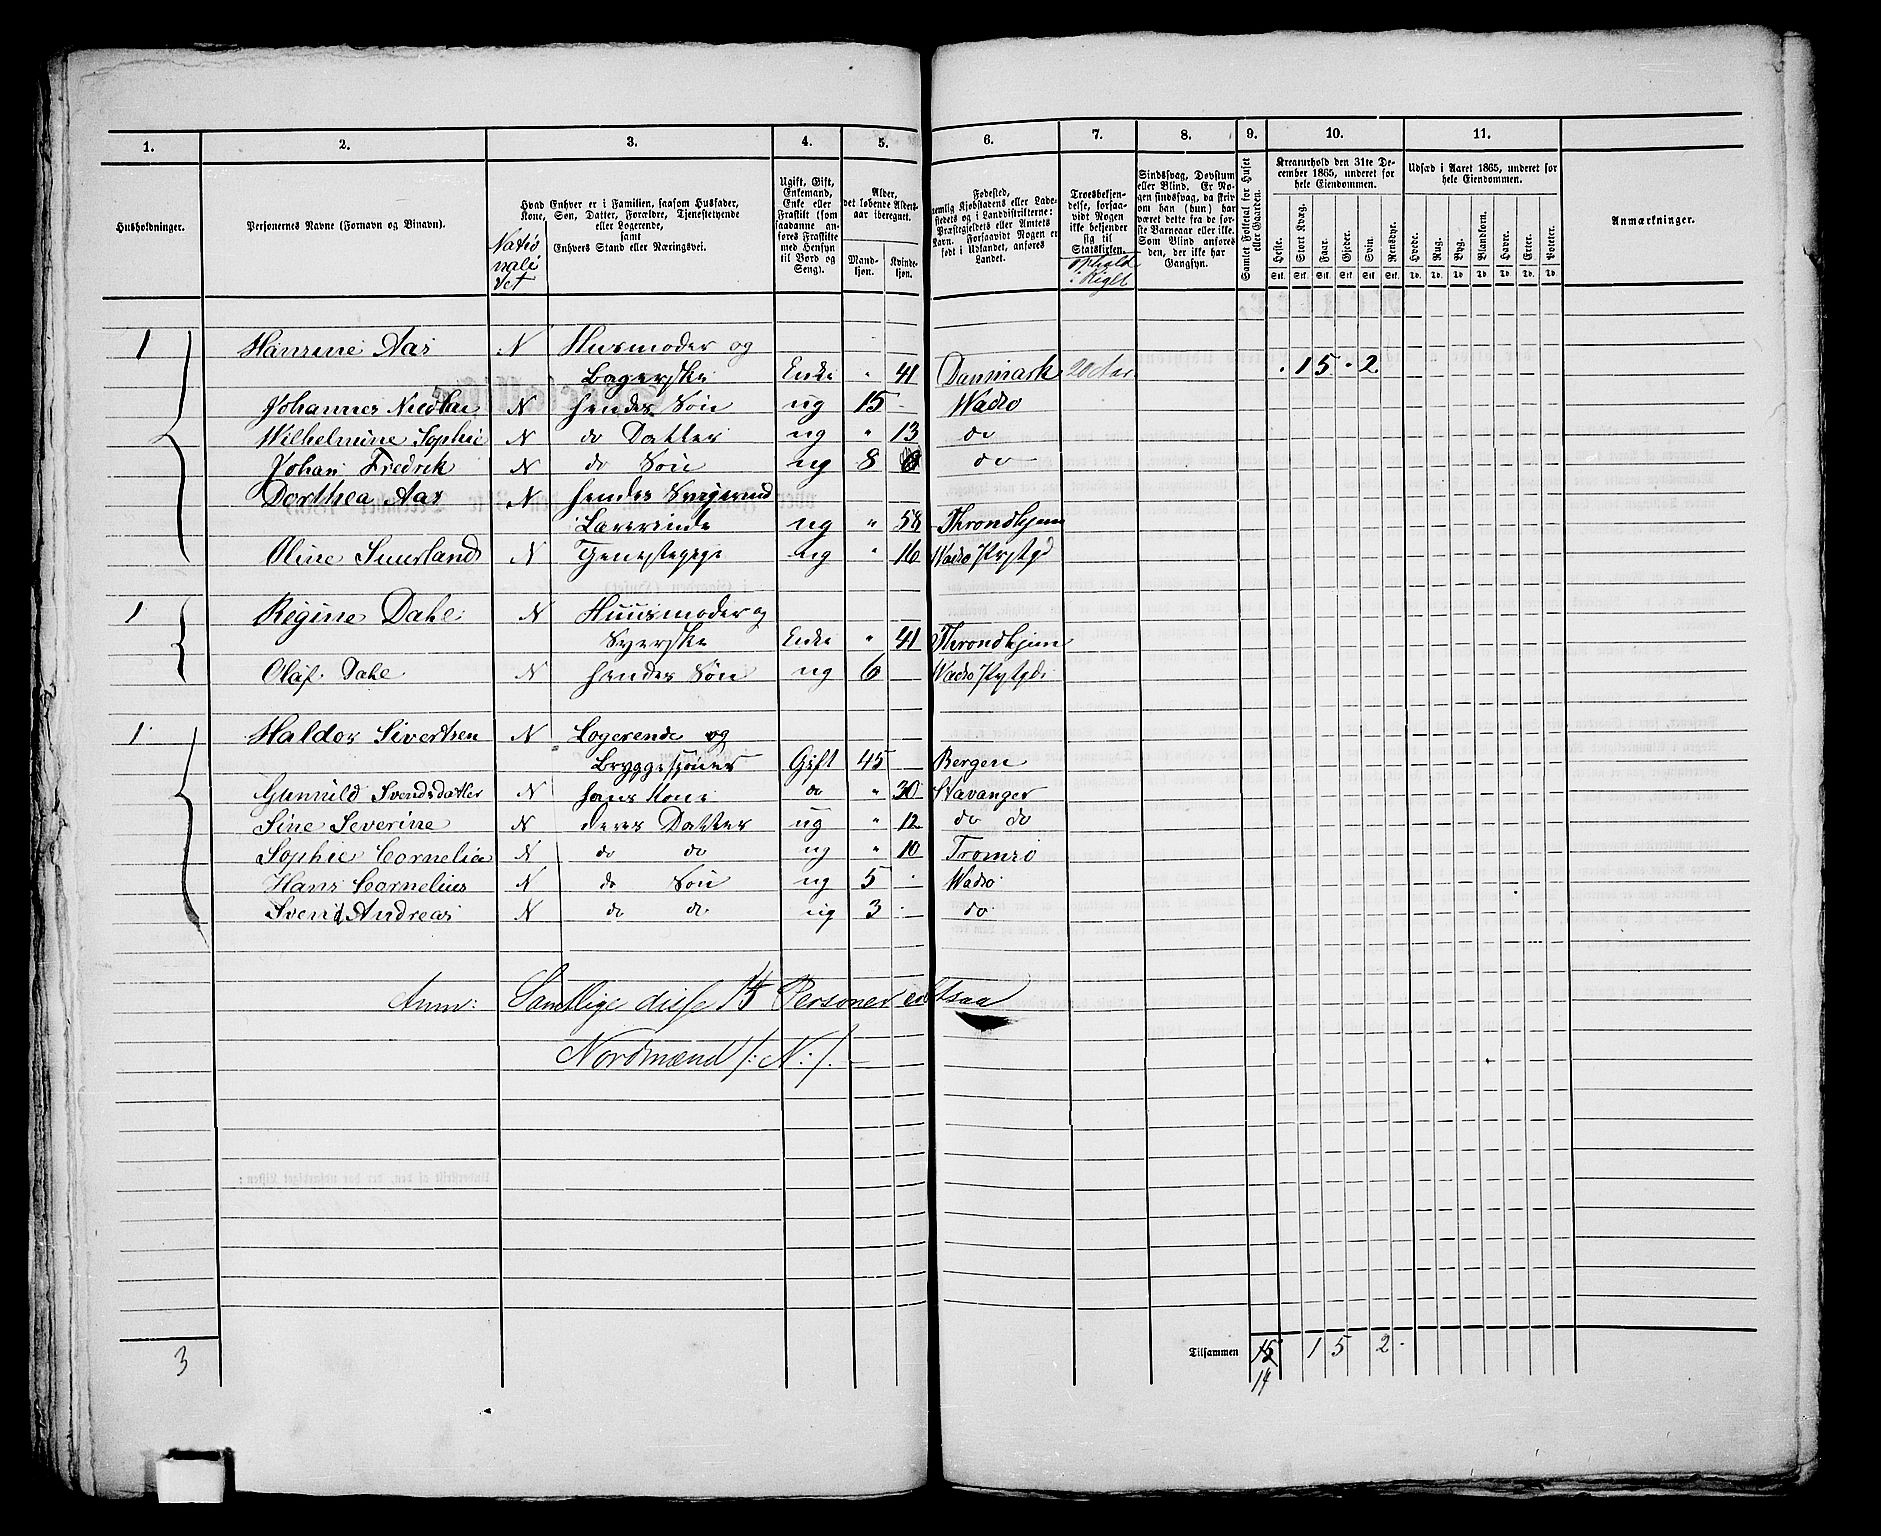 1. 2. 3. 4. 5. 6. 7. 8. 9. 10. 11.
Husholdninger.
Personernes Navne (Fornavn og Binavn).
Natio
nali
tet
Hvad Enhver er i Familien, saasom Husfader,
Kone, Søn, Datter, Forældre, Tjenestetyende
eller Logerende,
samt
Enhvers Stand eller Næringsvei.
Ugift, Gift,
Enkemand,
Enke eller
Fraskilt (som
saadanne an-
føres Fraskilte
med Hensyn
til Bord og
Seng).
Alder,
det løbende Alders-
aar iberegnet.
Mand-
kjøn.
Kvinde-
kjøn.
Fødested,
nemlig Kjøbstadens eller Lade-
stedets og i Landdistrikterne:
Præstegjeldets eller Amtets
Navn. Forsaavidt Nogen er
født i Udlandet, anføres
Landet.
Troesbekjen-
delse, forsaa-
vidt Nogen
ikke bekjender
sig til
Statskirken.
Ophold
i Riget
Sindssvag, Døvstum
eller Blind. Er No-
gen sindssvag, da skriv
om han (hun) har
været dette fra de før-
ste Barneaar eller ikke.
Som Blind anføres
den, der ikke har
Gangsyn.
Samlet Folketal for Huset
eller Gaarden.
Kreaturhold den 31te De-
cember 1865, underet for
hele Eiendommen.
Heste. Stort Kvæg. Faar. Gjeder. Svin. Rensdyr.
Stk. Stk. Stk. Stk. Stk. Stk.
Udsæd i Aaret 1865, underet for
hele Eiendommen.
Hvede. Rug. Byg. Blandkorn. Havre. Erter. Poteter.
Td. Td. Td. Td. Td. Td. Td.
Anmærkninger.
1 Hansine Aas N Husmoder og
Bagerske Enke " 41 Danmark 20 Aar 1 5 2
Johannes Nicolai N hendes Søn ug 15 Wadsø
Wilhelmine Sophie N do Datter ug " 13 do
Johan Fredrik N do Søn ug 8 do
Dorthea Aas N hendes Svigerind
Lærerinde ug " 58 Throndhjem
Oline Suurland N Tjenestepige ug " 16 Wadsø Prstgd
1 Regine Dahl N Huusmoder og
Syerske Enke " 41 Throndhjem
Olaf Dahl N hendes Søn ug 6 Wadsø Prstgd.
1 Haldor Sivertsen N Logerende og
Gift 45 Bergen
Gunnild Svendsdatter N hans Kone do " 30 Stavanger
Sine Severine N deres Datter ug " 12 do do
Sophie Cornelia N do do ug " 10 Tromsø
Hans Cornelius N do Søn ug 5 Wadsø
Svend Andreas N do do ug 3 do
Anm: Samtlige disse 14 Personer altsaa
Nordmænd /: N :/.
3 Tilsammen 15 1 5 2
14